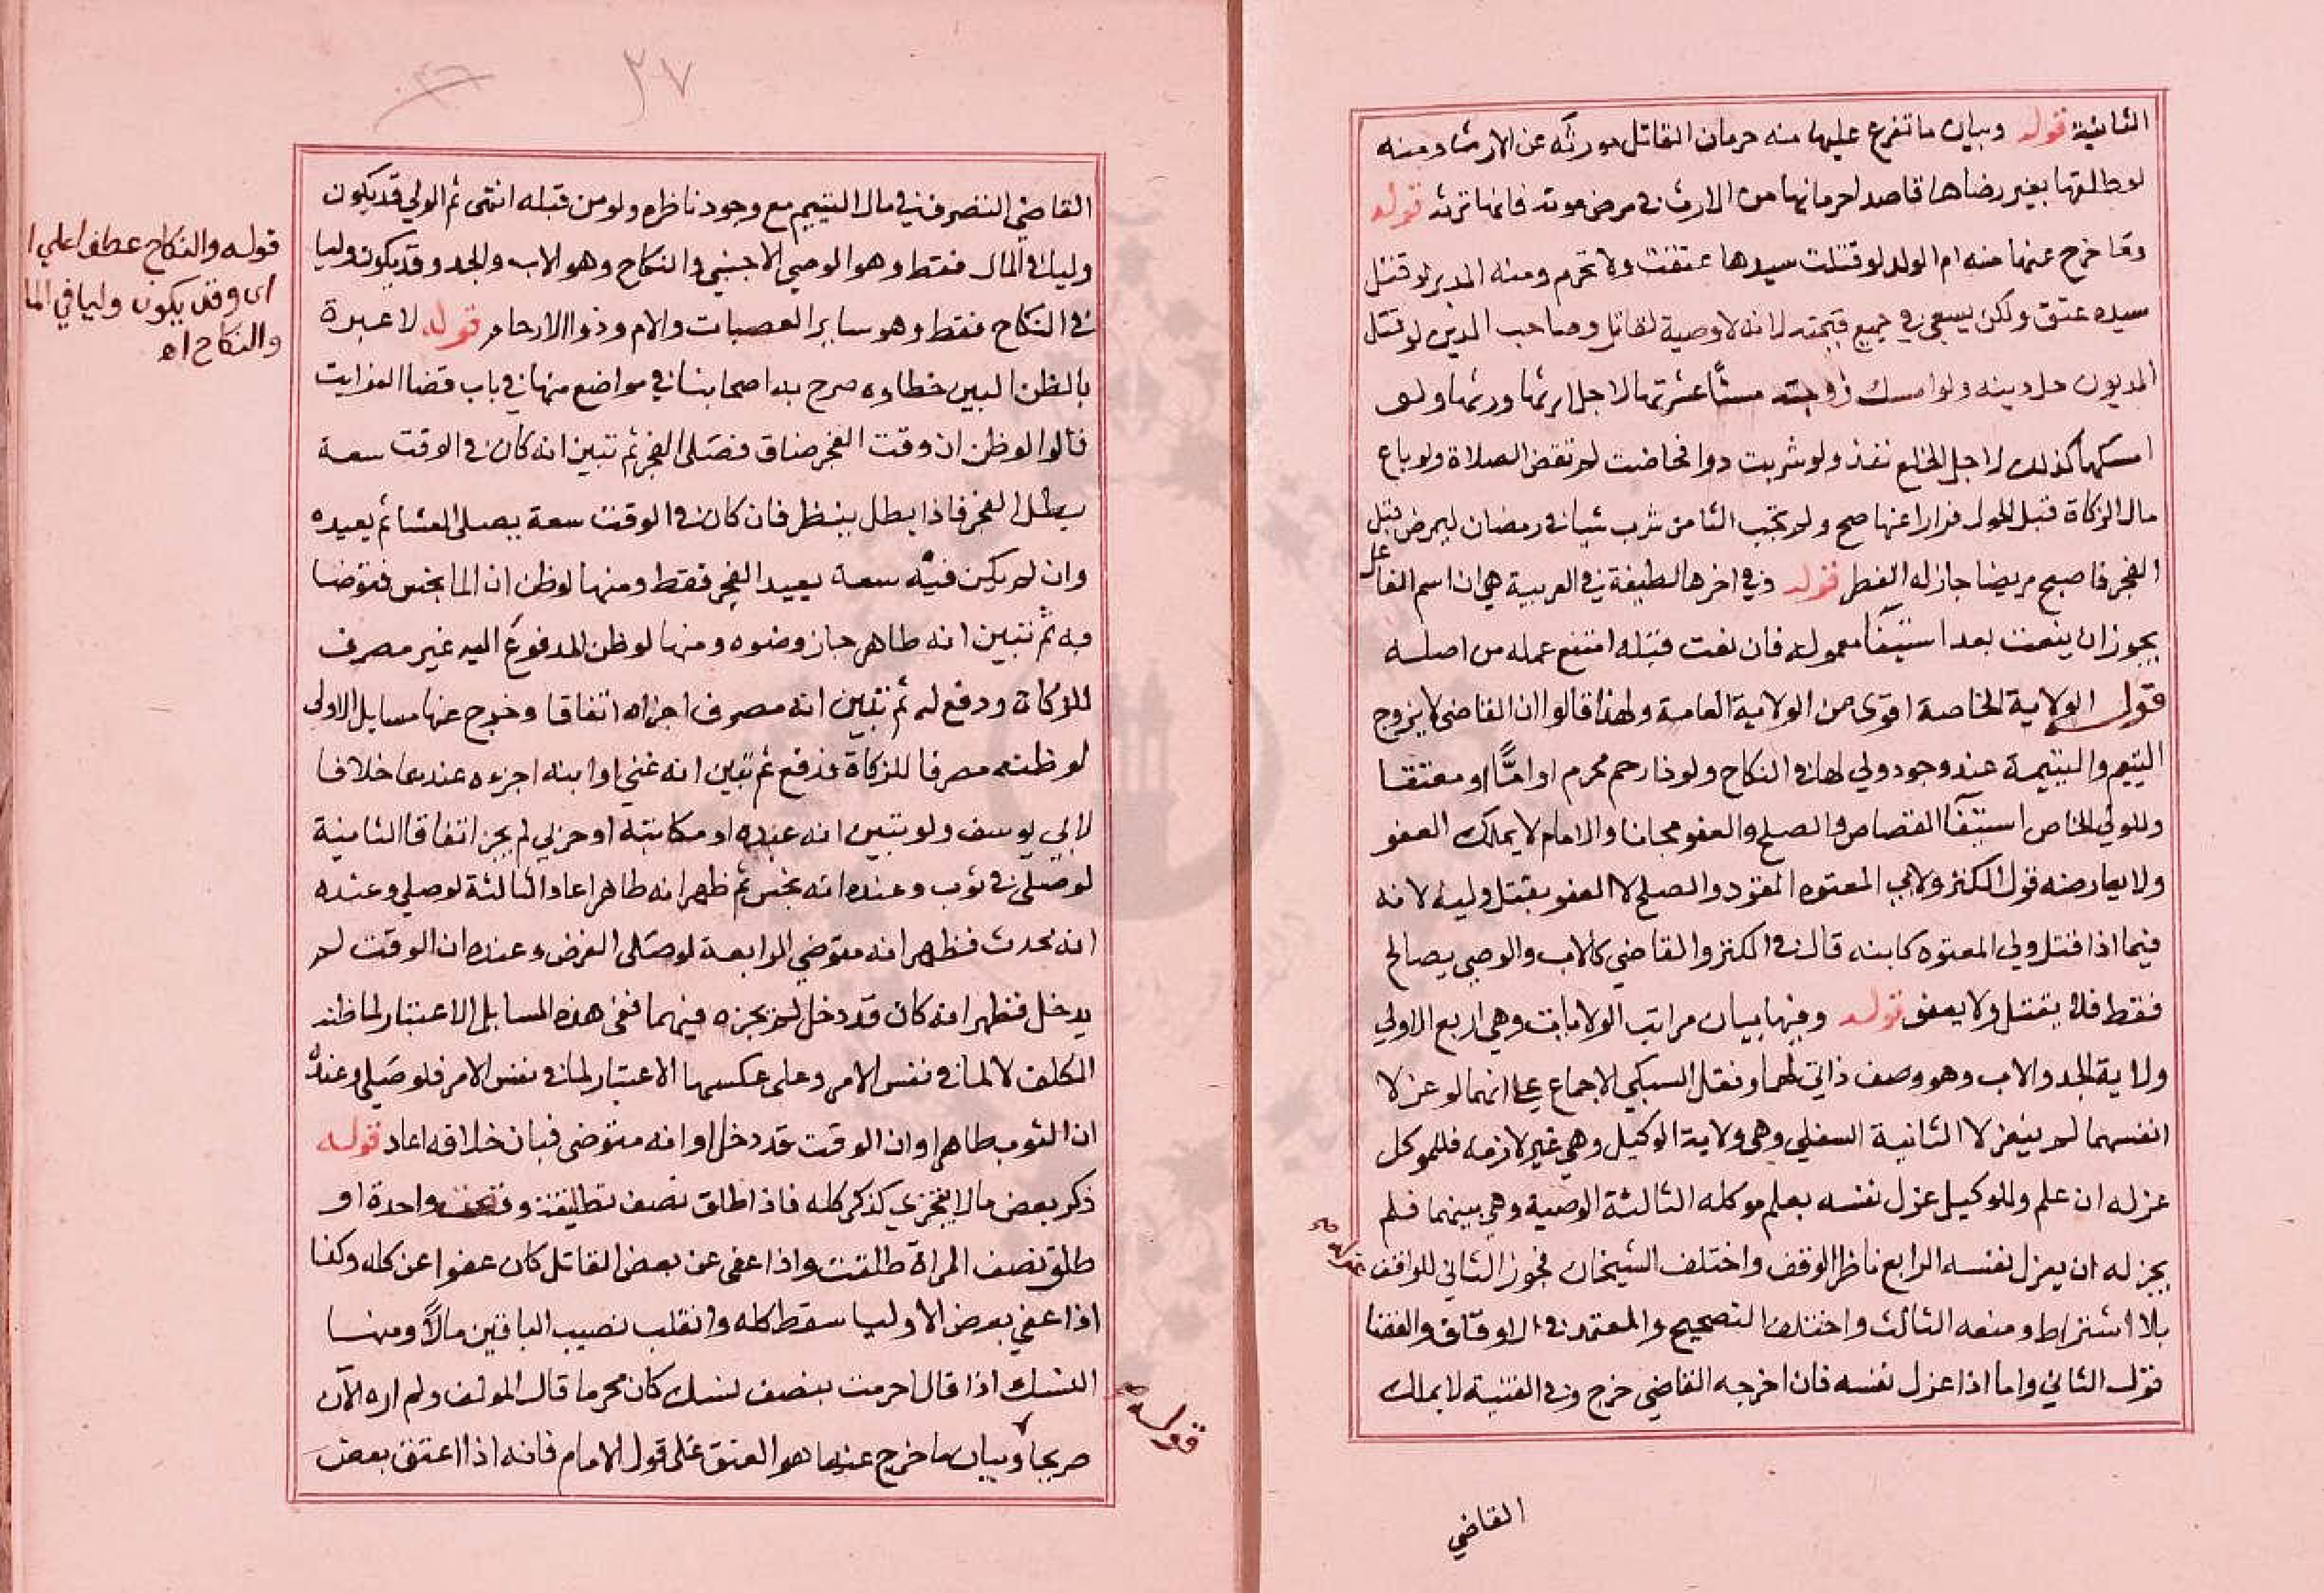 الثانية قوله وبيان ما تفرع عليها منه حرمان القاتل مورثه عن الارث ومنه
لو طلقها بغير رضاها قاصد لحرمانها من الارث في مرض موته فانها ترثه قوله
وما خرج عنها منه ام الولد لو قتلت سيدها عتقت ولا تحرم ومنه المدبر لو قتل
سيده عتق ولكن يسعى في جميع قيمته لانه لا وصية لقاتل وصاحب الدين لو قتل
المديون حل دينه ولو امسك زوجته مسئا عشرتها لاجل ارثها ورثها ولو
امسكها كذلك لاجل الخلع نفذ ولو شربت دوا فحاضت لم تقض الصلاة ولو باع
مال الزكاة قبل الحول فرارا عنها صح ولم تجب الثامن شرب شيا في رمضان ليمرض قبل
الفجر فاصبح مريضا جاز له الفطر قوله وفي اخرها لطيفة في العربية هي ان اسم الفاعل
يجوز ان ينعت بعد استيفا معموله فان نعت قبله امتنع عمله من اصله
قوله الولاية الخاصة اقوى من الولاية العامة ولهذا قالوا ان القاضي لا يزوج
اليتيم واليتيمة عند وجود ولي لها في النكاح ولو ذا رحم محرم او اما او معتقا
وللولي الخاص استيفا القصاص والصلح والعفو مجانا والامام لا يملك العفو
ولا يعارضه قول الكنز ولاب المعتوه القود والصلح لا العفو بقتل وليه لانه
فيما اذا قتل ولي المعتوه كابنه قال في الكنز والقاضي كالاب والوصي يصالح
فقط فلا يقتل ولا يعفو قوله وفيها بيان مراتب الولايات وهي اربع الاولى
ولاية الجد والاب وهو وصف ذاتي لهما ونقل السبكي الاجماع على انهما لو عزلا
انفسهما لم ينعزلا الثانية السفلي وهي ولاية الوكيل وهي غير لازمه فللموكل
عزله ان علم وللوكيل عزل نفسه بعلم موكله الثالثة الوصية وهي بينهما فلم
يجز له ان يعزل نفسه الرابع ناظر الوقف واختلف الشيخان فجوز الثاني للواقف عزله صح
بلا اشتراط ومنعه الثالث واختلف التصحيح والمعتمد في الاوقاف والقضا
قول الثاني واما اذا عزل نفسه فان اخرجه القاضي خرج وفي القنية لا يملك
القاضي
٢٧
القاضي التصرف في مال اليتيم مع وجود ناظره ولو من قبله انتهى ثم الولي قد يكون
وليا في المال فقط وهو الوصي الاجنبي والنكاح وهو الاب والجد وقد يكون وليا
في النكاح فقط وهو ساير العصبات والام وذوا الارحام قوله لا عبرة
بالظن البين خطاوه صرح به اصحابنا في مواضع منها في باب قضا الفوايت
قالوا لو ظن ان وقت الفجر ضاق فصلى الفجر ثم تبين انه كان في الوقت سعة
بطل الفجر فاذا بطل ينظر فان كان في الوقت سعة يصلي العشا ثم يعيده
وان لم يكن فيه سعة يعيد الفجر فقط ومنها لو ظن ان الما نجس فتوضا
به ثم تبين انه طاهر جاز وضوه ومنها لو ظن المدفوع اليه غير مصرف
للزكاة ودفع له ثم تبين انه مصرف اجزاه اتفاقا وخرج عنها مسايل الاولى
لو ظنه مصرفا للزكاة فدفع ثم تبين انه غني او ابنه اجزءه عندهما خلافا
لابي يوسف ولو تبين انه عبده او مكاتبه او حربي لم يجز اتفاقا الثانية
لو صلى في ثوب وعنده انه نجس ثم ظهر انه طاهر اعاد الثالثة لو صلى وعنده
انه محدث فظهر انه متوضي الرابعة لو صلى الفرض وعنده ان الوقت لم
يدخل فظهر انه كان قد دخل لم يجزه فيهما ففي هذه المسايل الاعتبار لما ظنه
المكلف لا لما في نفس الامر وعلى عكسها الاعتبار لما في نفس الامر فلو صلى وعنده
ان الثوب طاهر او ان الوقت قد دخل او انه متوضي فبان خلافه اعاد قوله
ذكر بعض ما لا يتجزي كذكر كله فاذا طلق نصف تطليقة وقعت واحدة او
طلق نصف المراة طلقت واذا عفى عن بعض القاتل كان عفوا عن كله وكذا
اذا عفي بعض الاوليا سقط كله وانقلب نصيب الباقين مالا ومنها
النسك اذا قال احرمت بنصف نسك كان محرما قال المولف ولم اره الآن
صريحا وبيان ما خرج عنها هو العتق على قول الامام فانه اذا اعتق بعض
قوله والنكاح عطف على ا
اي وقد يكون وليا في الما
والنكاح اه
قوله صح